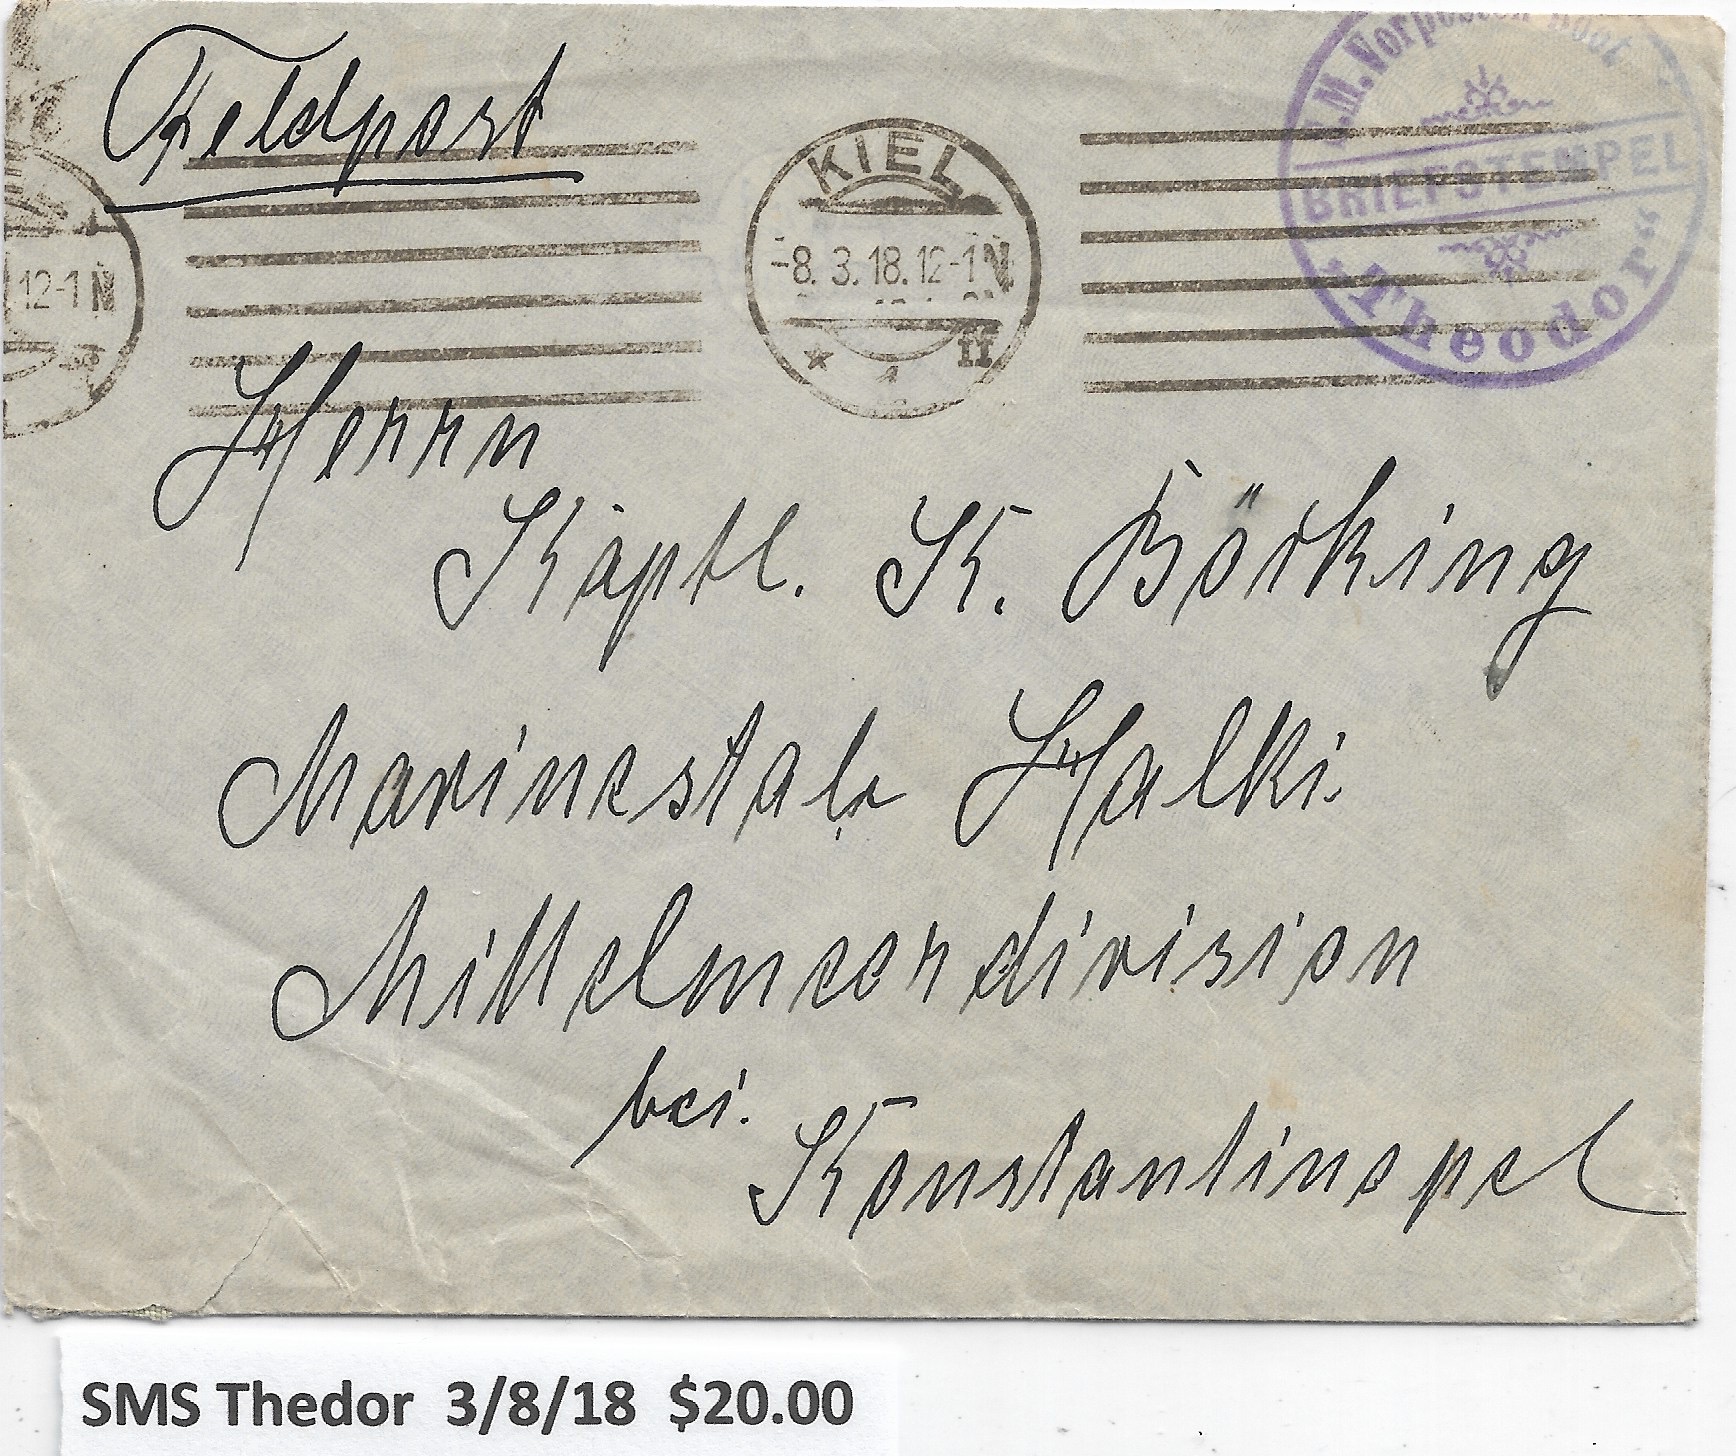 Feldpost
KIEL
-8. 3. 18. 12-1 N
ff
12-1 N
S.M. Vorposten Boot
BRIEFSTEMPEL
"Theodor"
Herrn
Kaptl. K. Börking
Marinestab Halki.
Mittelmeerdivision
bei.
Konstantinopel
SMS Thedor 3/8/18 $20.00